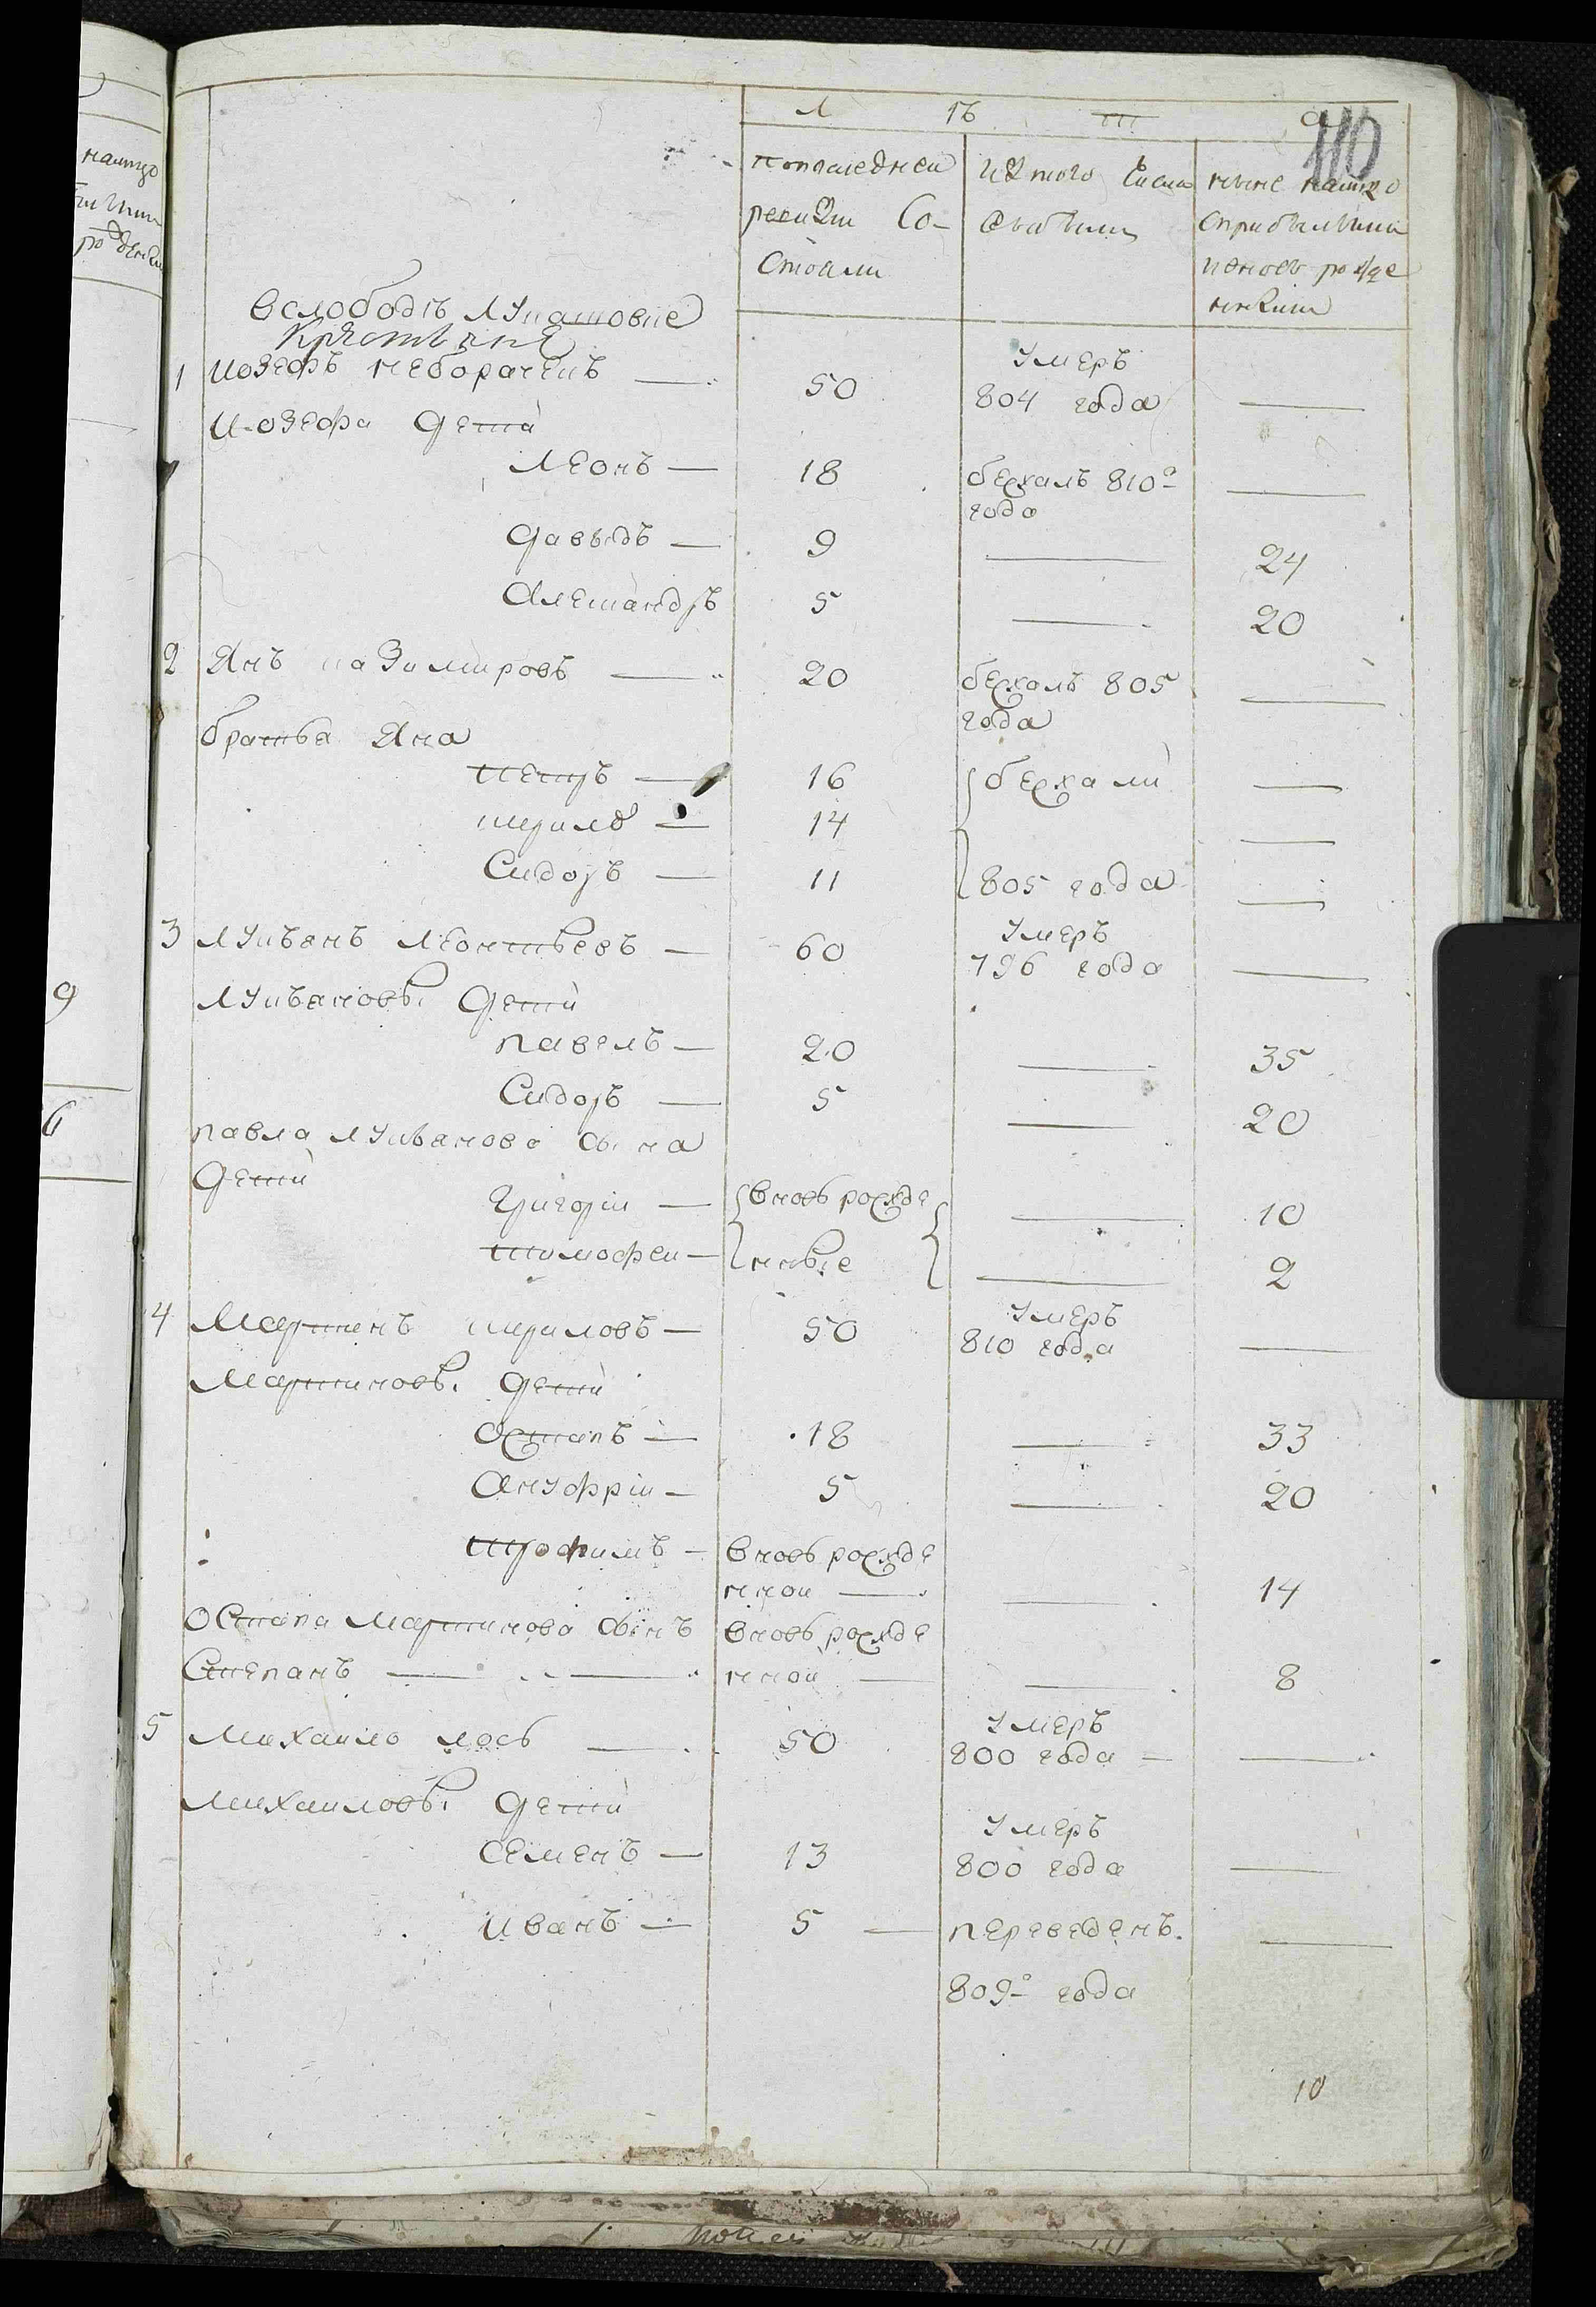 110
Л ѣ т а
по последней
ревизии Со-
стояли
Из того Числа
выбыли
ныне налицо
с прибылыми
и вновь рожде
нными
В слободѣ Лукашовке
Крестьяне
1 Иозефъ неборачекъ — 50 Умеръ 804 года —
Иозефа дети
Леонъ — 18 бежалъ 810го года —
Давыдъ — 9 — 24
Александръ 5 — 20
2 Янъ казимировъ — 20 бежалъ 805 года —
братья Яна
петръ — 16 бежали —
кирило — 14 —
Сидоръ — 11 805 года —
3 Лукъянъ Леонтьевъ — 60 Умеръ 796 года —
Лукъяновы дети
павелъ — 20 — 35
Сидоръ — 5 — 20
павла Лукьянова сына
дети
Григорiи — вновь рожде — 10
тимофеи — нные — 2
4 Мартинъ кириловъ — 50 Умеръ 810 года —
Мартиновы дети
Остапъ — 18 — 33
Ануфрiи — 5 — 20
трофимъ — вновь рожде
нной — — 14
Остапа Мартинова сынъ вновь рожде
Степанъ — нной — — 8
5 Михаило лось — 50 Умеръ 800 года — —
Михаиловы дети
Семенъ — 13 Умеръ 800 года —
иванъ — 5 — переведенъ. —
809го года
10
налицо
рожден
9
6